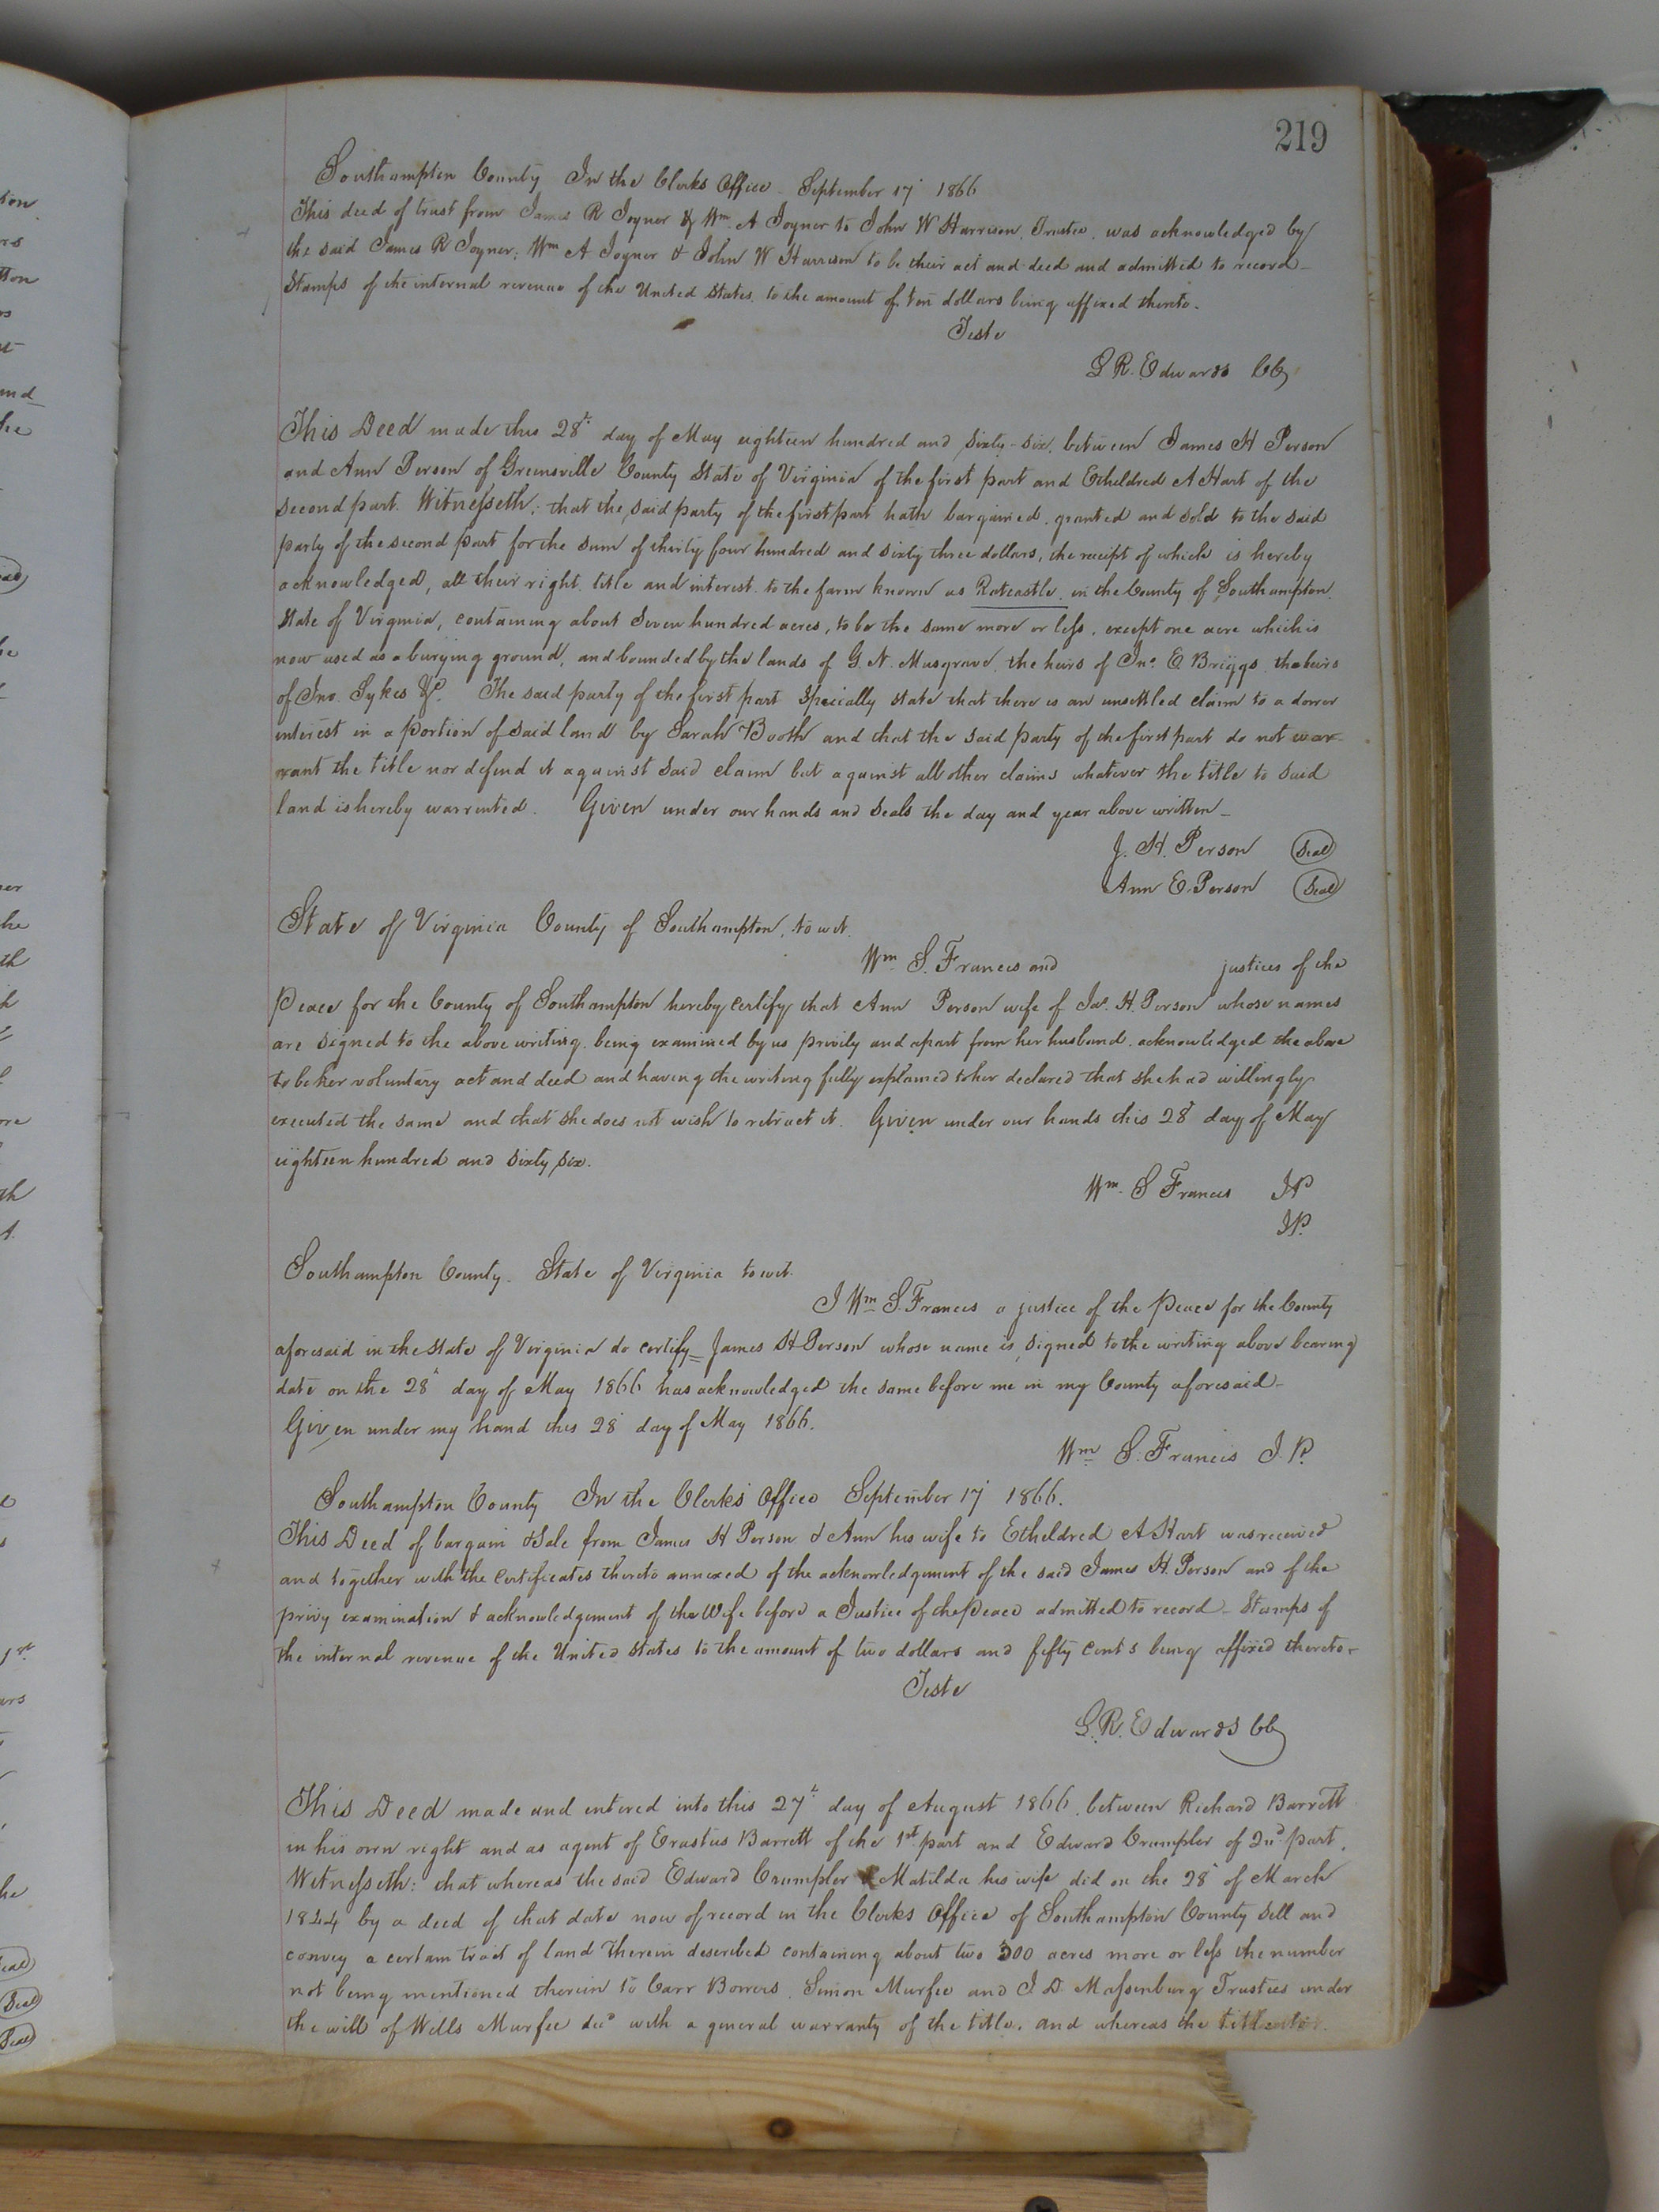 219
Southampton County In the Clerks Office September 17 1866
This deed of trust from James R Joyner & Wm A Joyner to John W Harrison, Trustee, was acknowledged by
the said James R Joyner; Wm A Joyner & John W Harrison to be their act and deed and admitted to record-
Stamps of the internal revenue of the United States, to the amount of ten dollars being affixed thereto.
Teste
L R. Edwards CC
This Deed made this 28th day of May eighteen hundred and sixty-six, between James H Person
and Ann Person of Greensville County State of Virginia of the first part and Etheldred A Hart of the
second part. Witnesseth; that the said party of the first part hath bargained, granted and sold to the said
party of the second part for the sum of thirty four hundred and sixty three dollars, the receipt of which is hereby
acknowledged, all their right title and interest to the farm known as Ratcastle, in the County of Southampton,
State of Virginia, containing about seven hundred acres, to be the same more or less, except one acre which is
now used as a burying ground, and bounded by the lands of G. N. Musgrave, the heirs of Jno. E Briggs, the heirs
of Jno. Sykes &c. The said party of the first part specially state that there is an unsettled claim to a dower
interest in a portion of said land by Sarah Booth and that the said party of the first part do not war-
rant the title nor defend it against said claim but against all other claims whatever the title to said
land is hereby warrented. Given under our hands and seals the day and year above written-
J. H. Person (Seal)
Ann E. Person (Seal)
State of Virginia County of Southampton, to wit.
Wm S. Francis and justices of the
Peace for the County of Southampton hereby certify that Ann Person wife of Jas. H. Person whose names
are signed to the above writing, being examined by us privily and apart from her husband, acknowledged the above
to be her voluntary act and deed and having the writing fully explained to her declared that she had willingly
executed the same and that she does not wish to retract it. Given under our hands this 28th day of May
eighteen hundred and sixty six.
Wm. S Francis JP
JP.
Southampton County. State of Virginia to wit.
I Wm S. Francis a justice of the Peace for the County
aforesaid in the State of Virginia do certify = James H Person whose name is signed to the writing above bearing
date on the 28th day of May 1866 has acknowledged the same before me in my County aforesaid-
Given under my hand this 28 day of May 1866.
Wm S. Francis J. P.
Southampton County In the Clerks Office September 17 1866.
This Deed of bargain & Sale from James H Person & Ann his wife to Etheldred A Hart was received
and together with the certificates thereto annexed of the acknowledgement of the said James H. Person and of the
privy examination & acknowledgement of the Wife before a Justice of the Peace admitted to record- Stamps of
the internal revenue of the United States to the amount of two dollars and fifty cents being affixed thereto-
Teste
L. R. Edwards CC
This Deed made and entered into this 27th day of August 1866, between Richard Barrett
in his own right and as agent of Erastus Barrett of the 1st part and Edward Crumpler of 2nd part,
Witnesseth; that whereas the said Edward Crumpler & Matilda his wife did on the 28th of March
1844 by a deed of that date now of record in the Clerks Office of Southampton County sell and
convey a certain tract of land therein described containing about two 300 acres more or less the number
not being mentioned therein to Carr Bowers, Simon Murfee and J. D. Massenburg Trustees under
the will of Wells Murfee decd with a general warranty of the title, and whereas the title to